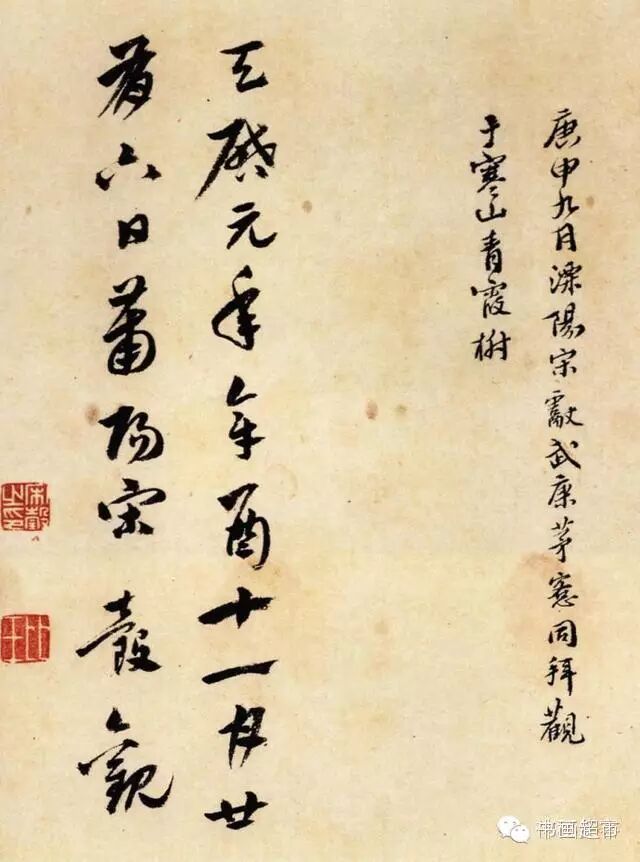 庚申九月溧陽宋獻武康茅窓同拜觀
于寒山青霞榭
天啓元年辛酉十一月廿
有六日莆陽宋瑴觀
宋瑴之印
书画超市